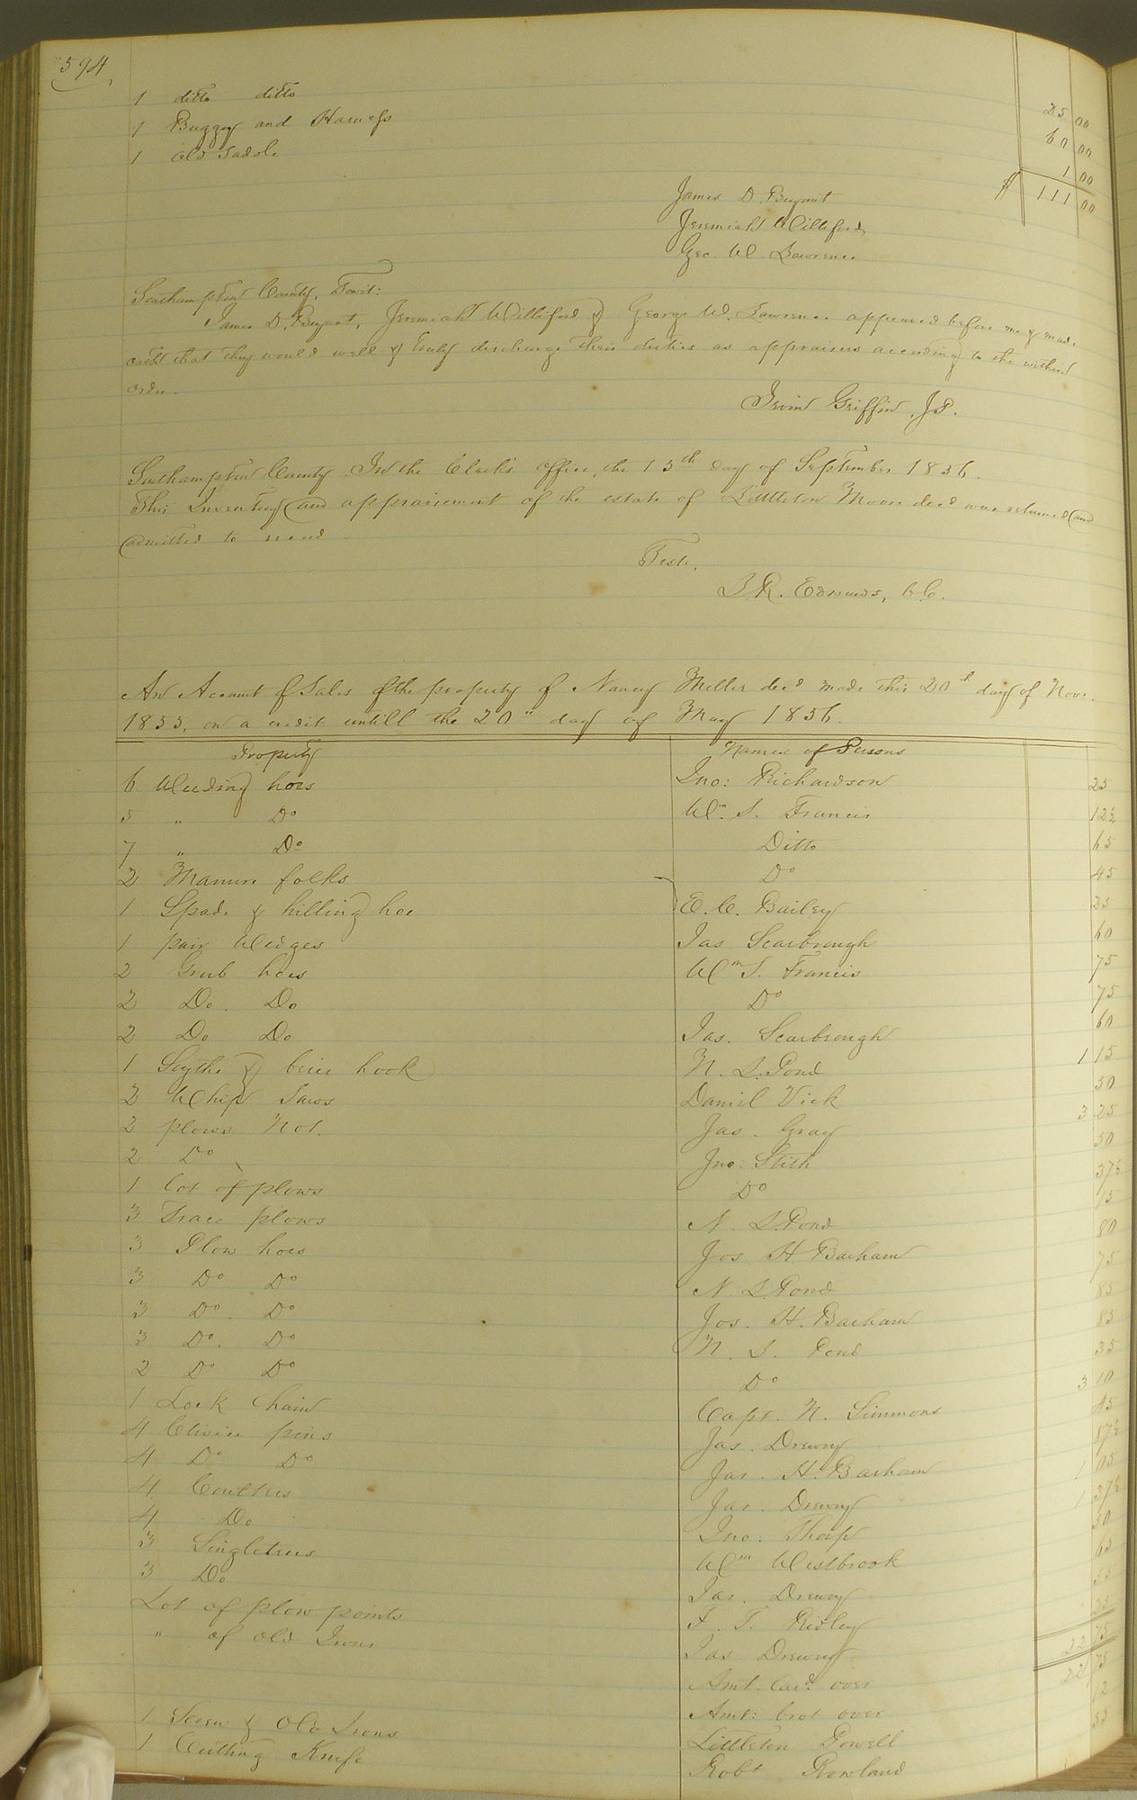 594
1 ditto ditto 25 00
1 Buggy and Harness 60 00
1 old Sadole 1 00
$ 111 00
James D. Bryant
Jeremiah Williford
Geo. W. Lawrence
Southampton County, Towit:
James D. Bryant, Jeremiah Williford & George W. Lawrence appeared before me & made
oath that they would well & truly discharge their duties as appraisers according to the within
order.
Irvin Griffin, J.P.
Southampton County In the Clerk's office, the 15th day of September 1856.
This Inventory and appraisement of the estate of Littleton Moore decd was returned and
admitted to record.
Teste,
L R. Edwards, C.C.
An Account of Sales of the property of Nancy Miller decd made this 20th day of Nov.
1855, on a credit untill the 20" day of May 1856.
Property Names of Persons
6 Weeding hoes Jno: Richardson 25
5 " Do Wm. S. Francis 12½
7 " Do Ditto 65
2 Manure folks Do 45
1 Spade & hilling hoe E. C. Bailey 25
1 pair Wedges Jas Scarbrough 60
2 Grub hoes Wm S. Francis 75
2 Do. Do Do 75
2 Do Do Jas. Scarbrough 60
1 Scythe & brier hook N. S. Pond 1 15
2 Whip Saws Daniel Vick 50
2 plows No1. Jas. Gray 3 25
2 Do Jno: Stith 50
1 Lot of plows Do 37½
3 Trace plows N. S. Pond 15
3 Plow hoes Jos H Barham 80
3 Do Do N. S. Pond 75
3 Do. Do Jos. H. Barham 85
3 Do. Do N. S. Pond 85
2 Do Do Do 35
1 Lock Chain Capt. N. Simmons 3 10
4 Clivice pins Jas. Drewry 45
4 Do Do Jas. H. Barham 87½
4 Coultres Jas. Drewry 1 05
4 Do Jno: Tharp 1 37½
3 Singletrees Wm Westbrook 50
3 Do Jas. Drewry
Lot of plow points F. T. Ridley
" of old Irons Jas Drewry
Amt. Card. over 22 75
Amt: brot over 22 75
1 Screw & Old Irons Littleton Powell 12
1 Cutting Knife Robt Rowland